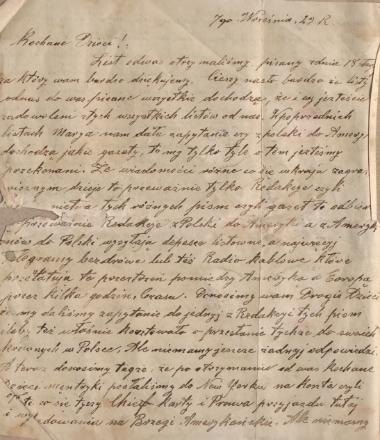 7go Wrzesnia, 29 R
Kochane Dzieci!.
List odwas otrzymalismy pisany zdnia 18
za ktory wam bardzo dziekujemy. Cieszy nasto bardzo ze listy
odnas do was pisane wszystkie dochodza, ze i wy jestescie
zadowoleni ztych wszystkich listow od nas. Wpoprzednich
listach Marya nam dala zapytanie czy zpolski do Ameryki
dochodza jakie gazety, to my tylko tyle o tem jestesmy
przekonani. Ze wiadomosci rozne co sie wkraju zagra
nicznym dzieja to przewaznie tylko Redakcje czyli
i tych roznych pism czyli gazet to odbior
przewaznie Redakcje zPolski do Ameryki a z Ameryki
do Polski wysylaja depesze listowne, a najwiecej
bezdrowe lub tez Radio kablowe ktore
przelatuja te przestrzen pomiedzy Ameryka a Europa
przez kilka godzin, Czasu. Donosimy wam Drogie Dzieci
ze my dalismy zapytanie do jednej z Redakcji tych pism
tez wlasnie kosztowalo o przeslanie tychze do swoich
krewnych w Polsce, Ale niemamy jeszcze zadnej odpowiedzi.
A teraz donosimy tagze, ze po otrzymaniu od was Kochane
Dzieci metryki poslalismy do New Yorku na konta czyli
to w sie tyczy Karty i Prawa przyjazdu tutaj
i wyladowania na Brzegi Amerykanskie. Ale niemamy